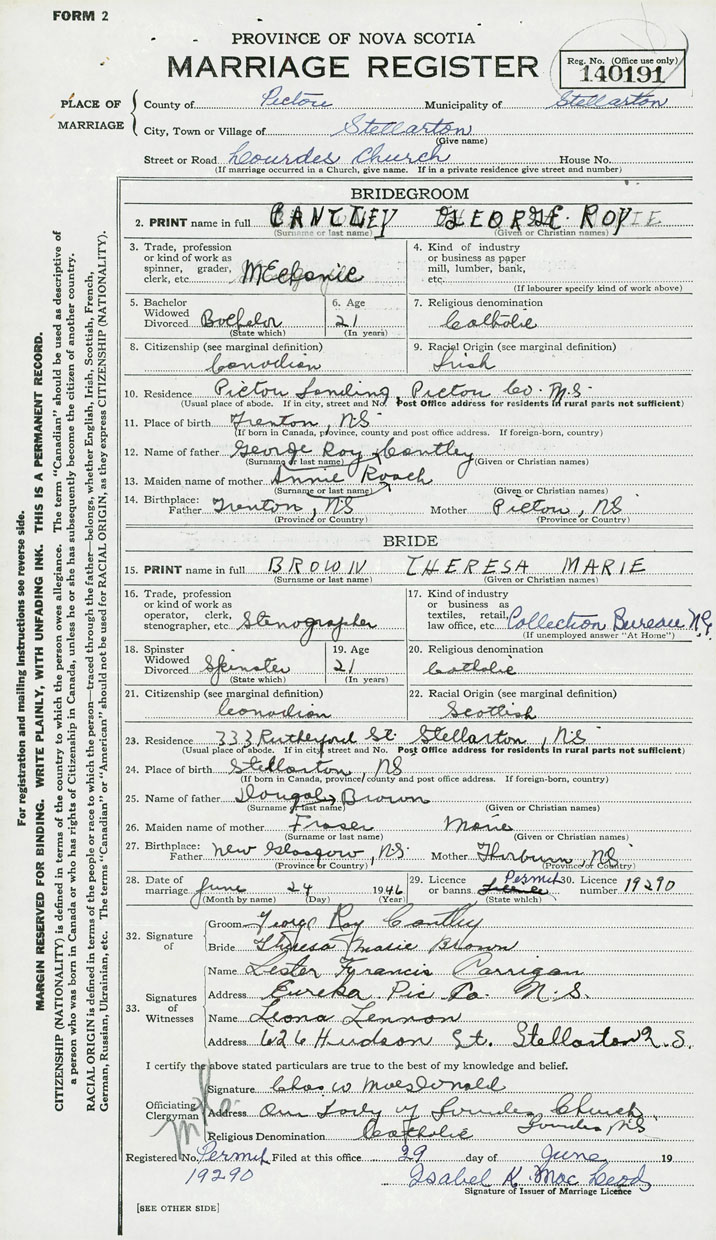 FORM 2
PROVINCE OF NOVA SCOTIA
MARRIAGE REGISTER
Reg. No. (Office use only)
140191
PLACE OF MARRIAGE
County of Pictou Municipality of Stellarton
City, Town or Village of Stellarton
(Give name)
Street or Road Lourdes Church House No.
(If marriage occurred in a Church, give name. If in a private residence give street and number)
BRIDEGROOM
2. PRINT name in full CANTLEY GEORGE ROY
(Surname or last name) (Given or Christian names)
3. Trade, profession or kind of work as spinner, grader, clerk, etc. MEchanic
4. Kind of industry or business as paper mill, lumber, bank, etc.
(If labourer specify kind of work above)
5. Bachelor Widowed Divorced Bachelor
(State which)
6. Age 21
(In years)
7. Religious denomination
Catholic
8. Citizenship (see marginal definition)
Canadian
9. Racial Origin (see marginal definition)
Irish
10. Residence Pictou Landing, Pictou Co. N.S.
(Usual place of abode. If in city, street and No. Post Office address for residents in rural parts not sufficient)
11. Place of birth Trenton, NS
(If born in Canada, province, county and post office address. If foreign-born, country)
12. Name of father George Roy Cantley
(Surname or last name) (Given or Christian names)
13. Maiden name of mother Annie Roach
(Surname or last name) (Given or Christian names)
14. Birthplace: Father Trenton, NS Mother Pictou, NS
(Province or Country) (Province or Country)
BRIDE
15. PRINT name in full BROWN THERESA MARIE
(Surname or last name) (Given or Christian names)
16. Trade, profession or kind of work as operator, clerk, stenographer, etc. Stenographer
17. Kind of industry or business as textiles, retail, law office, etc. Collection Bureau N.G.
(If unemployed answer "At Home")
18. Spinster Widowed Divorced Spinster
(State which)
19. Age 21
(In years)
20. Religious denomination
Catholic
21. Citizenship (see marginal definition)
Canadian
22. Racial Origin (see marginal definition)
Scottish
23. Residence 333 Rutherford St. Stellarton, NS
(Usual place of abode. If in city, street and No. Post Office address for residents in rural parts not sufficient)
24. Place of birth Stellarton, NS
(If born in Canada, province, county and post office address. If foreign-born, country)
25. Name of father Dougald Brown
(Surname or last name) (Given or Christian names)
26. Maiden name of mother Fraser Marie
(Surname or last name) (Given or Christian names)
27. Birthplace: Father New Glasgow, N.S. Mother Thorburn, NS
(Province or Country) (Province or Country)
28. Date of marriage June 24 1946
(Month by name) (Day) (Year)
29. Licence or banns Permit
(State which)
30. Licence number 19290
32. Signature of
Groom George Roy Cantley
Bride Theresa Marie Brown
33. Signatures of Witnesses
Name Lester Francis Carrigan
Address Eureka Pic Co. N.S.
Name Leona Lennon
Address 626 Hudson St. Stellarton N.S.
I certify the above stated particulars are true to the best of my knowledge and belief.
Officiating Clergyman
Signature Chas W MacDonald
Address Our Lady of Lourdes Church
Lourdes, NS
Religious Denomination Catholic
Registered No. Permit Filed at this office 29 day of June 19
19290
Isabel K. MacLeod
Signature of Issuer of Marriage Licence
[SEE OTHER SIDE]
For registration and mailing instructions see reverse side.
MARGIN RESERVED FOR BINDING. WRITE PLAINLY, WITH UNFADING INK. THIS IS A PERMANENT RECORD.
CITIZENSHIP (NATIONALITY) is defined in terms of the country to which the person owes allegiance. The term "Canadian" should be used as descriptive of
a person who was born in Canada or who has rights of Citizenship in Canada, unless he or she has subsequently become the citizen of another country.
RACIAL ORIGIN is defined in terms of the people or race to which the person—traced through the father—belongs, whether English, Irish, Scottish, French,
German, Russian, Ukrainian, etc. The terms "Canadian" or "American" should not be used for RACIAL ORIGIN, as they express CITIZENSHIP (NATIONALITY).